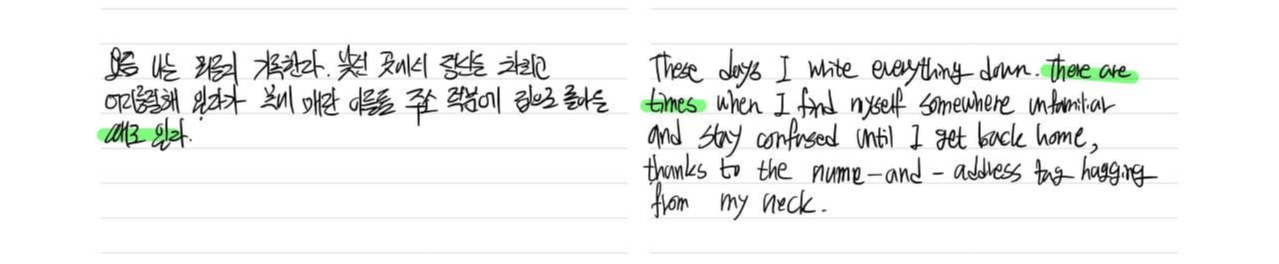 요즘 나는 뭐든지 기록한다. 낯선 곳에서 정신을 차리고
어리둥절해 있다가 목에 매단 이름표 주소 덕분에 집으로 돌아올
때도 있다.
These days I write everything down. there are
times when I find myself somewhere unfamiliar
and stay confused until I get back home,
thanks to the name-and-address tag hagging
from my neck.